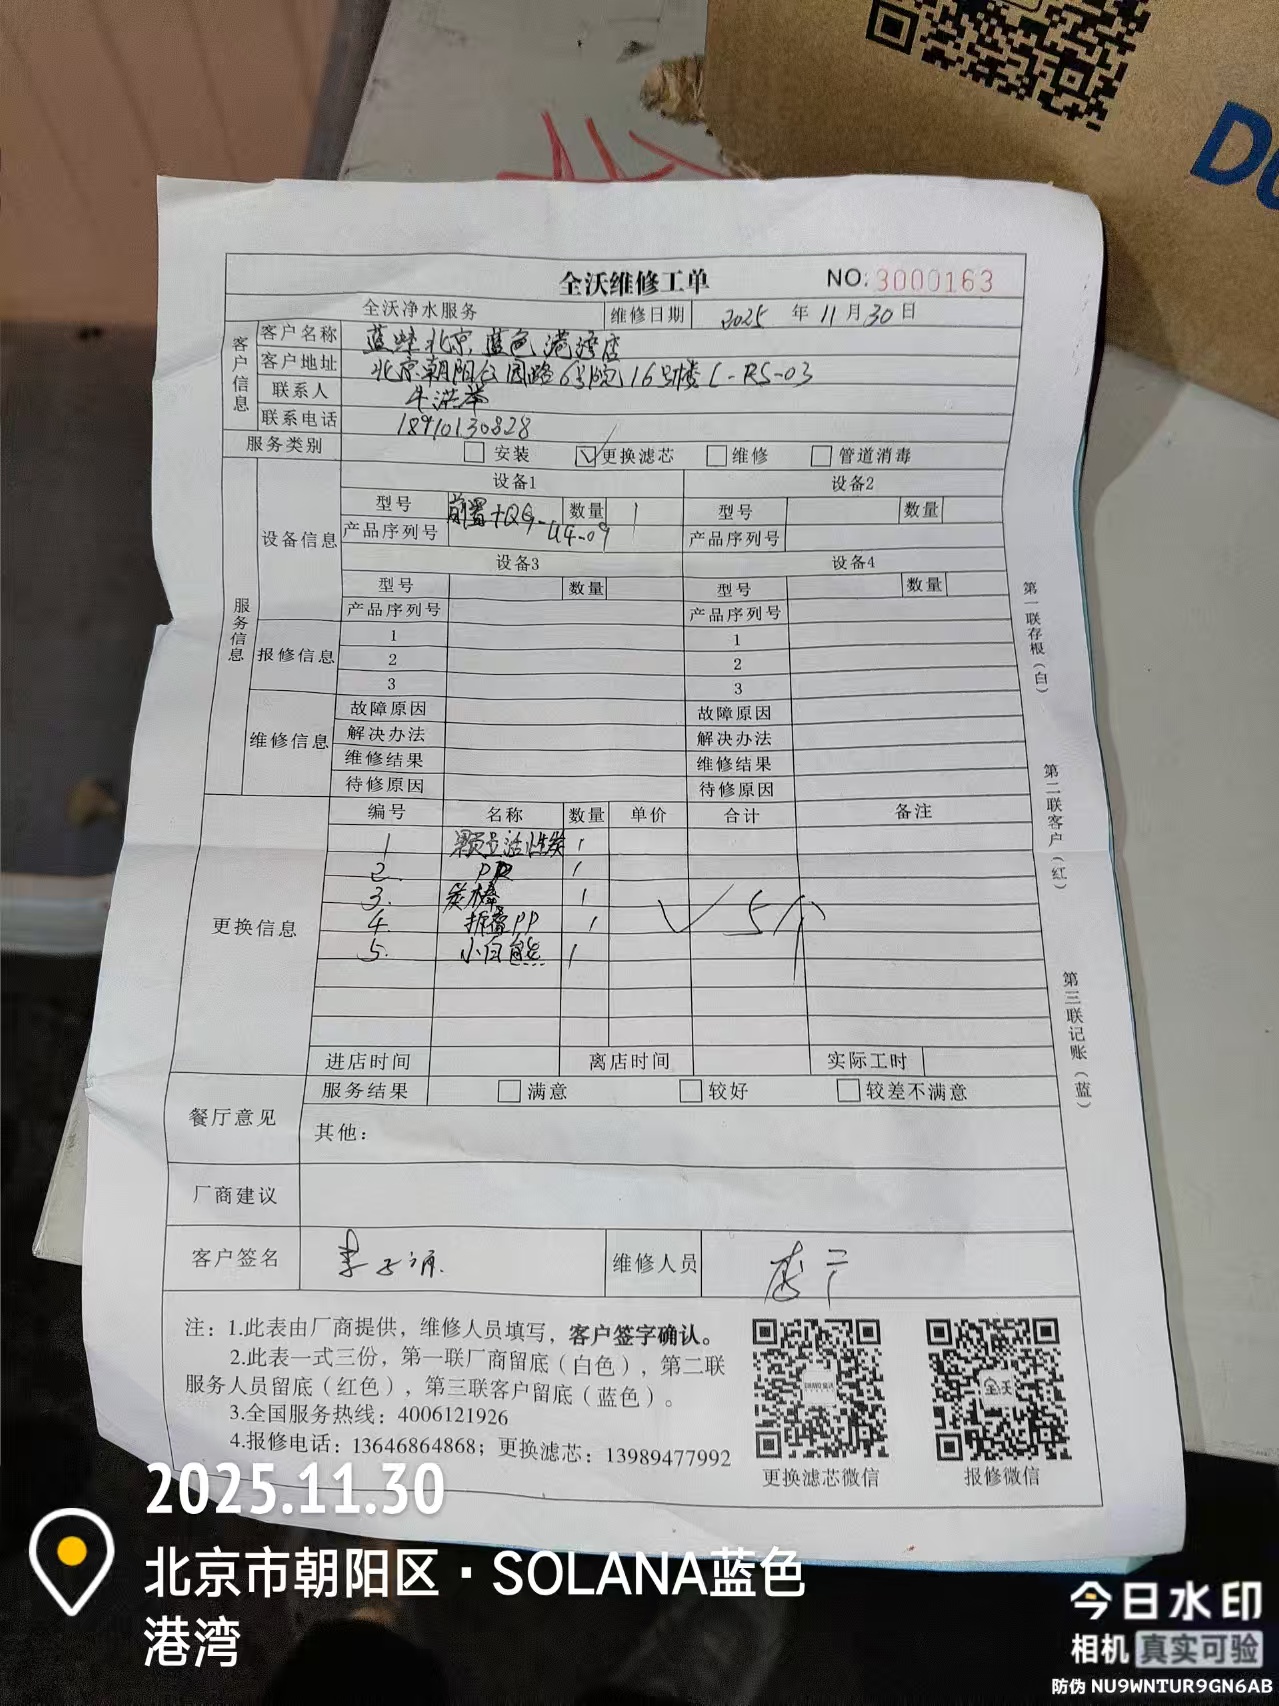 全沃维修工单 NO:3000163
全沃净水服务 维修日期 2025 年 11 月 30 日
客户信息
客户名称 蓝蛙北京蓝色港湾店
客户地址 北京朝阳公园路6号院16号楼L-RS-03
联系人
联系电话 18910130828
服务类别 安装 更换滤芯 维修 管道消毒
服务信息
设备信息
设备1 设备2
型号 前置+QG-U4-09 数量 1 型号 数量
产品序列号 产品序列号
设备3 设备4
型号 数量 型号 数量
产品序列号 产品序列号
报修信息
1 1
2 2
3 3
维修信息
故障原因 故障原因
解决办法 解决办法
维修结果 维修结果
待修原因 待修原因
更换信息
编号 名称 数量 单价 合计 备注
1 颗粒活性炭 1
2. PP 1
3. 炭棒 1
4. 折叠PP 1 5个
5. 小白熊 1
进店时间 离店时间 实际工时
餐厅意见
服务结果 满意 较好 较差不满意
其他:
厂商建议
客户签名 维修人员
注:1.此表由厂商提供,维修人员填写,客户签字确认。
2.此表一式三份,第一联厂商留底(白色),第二联
服务人员留底(红色),第三联客户留底(蓝色)。
3.全国服务热线:4006121926
4.报修电话:13646864868;更换滤芯:13989477992
更换滤芯微信 报修微信
全沃
第一联存根(白)
第二联客户(红)
第三联记账(蓝)
2025.11.30
北京市朝阳区·SOLANA蓝色
港湾
今日水印
相机 真实可验
防伪 NU9WNTUR9GN6AB